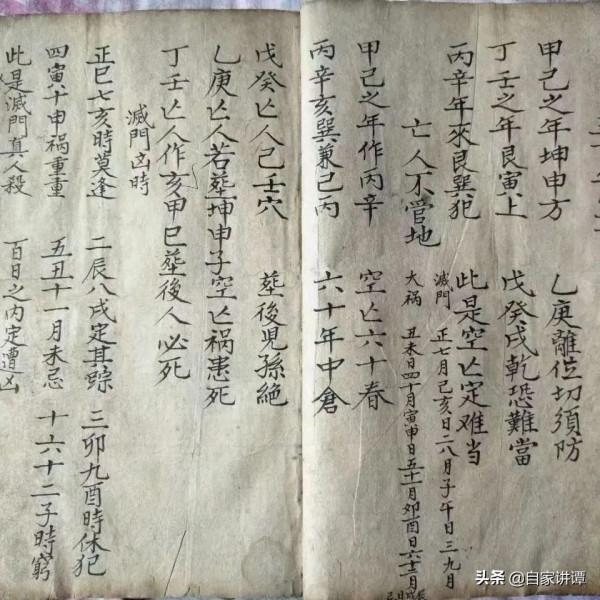 甲己之年坤申方 乙庚離位切須防
丁壬之年艮寅上 戊癸戌乾恐難當
丙辛年來艮巽犯 此是空亡定难当
亡人不管地
滅門 正七月己亥日二八月子午日三九月
大祸 丑未日四十月寅申日五十一月卯酉日六十二月
甲己之年作丙辛 空亡六十春
丙辛亥巽兼己丙 六十年中倉
戊癸亡人己壬穴 塟後児孫絶
乙庚亡人若塟坤申子空亡祸患死
丁壬亡人作亥甲巳塟後人必死
滅門凶時
正巳七亥時莫逢 二辰八戌定其踪 三卯九酉時休犯
四寅八十申祸重重 五丑十一月未忌 十六十二子時窮
此是滅門真人殺 百日之内定遭凶
头条 @自家讲谭